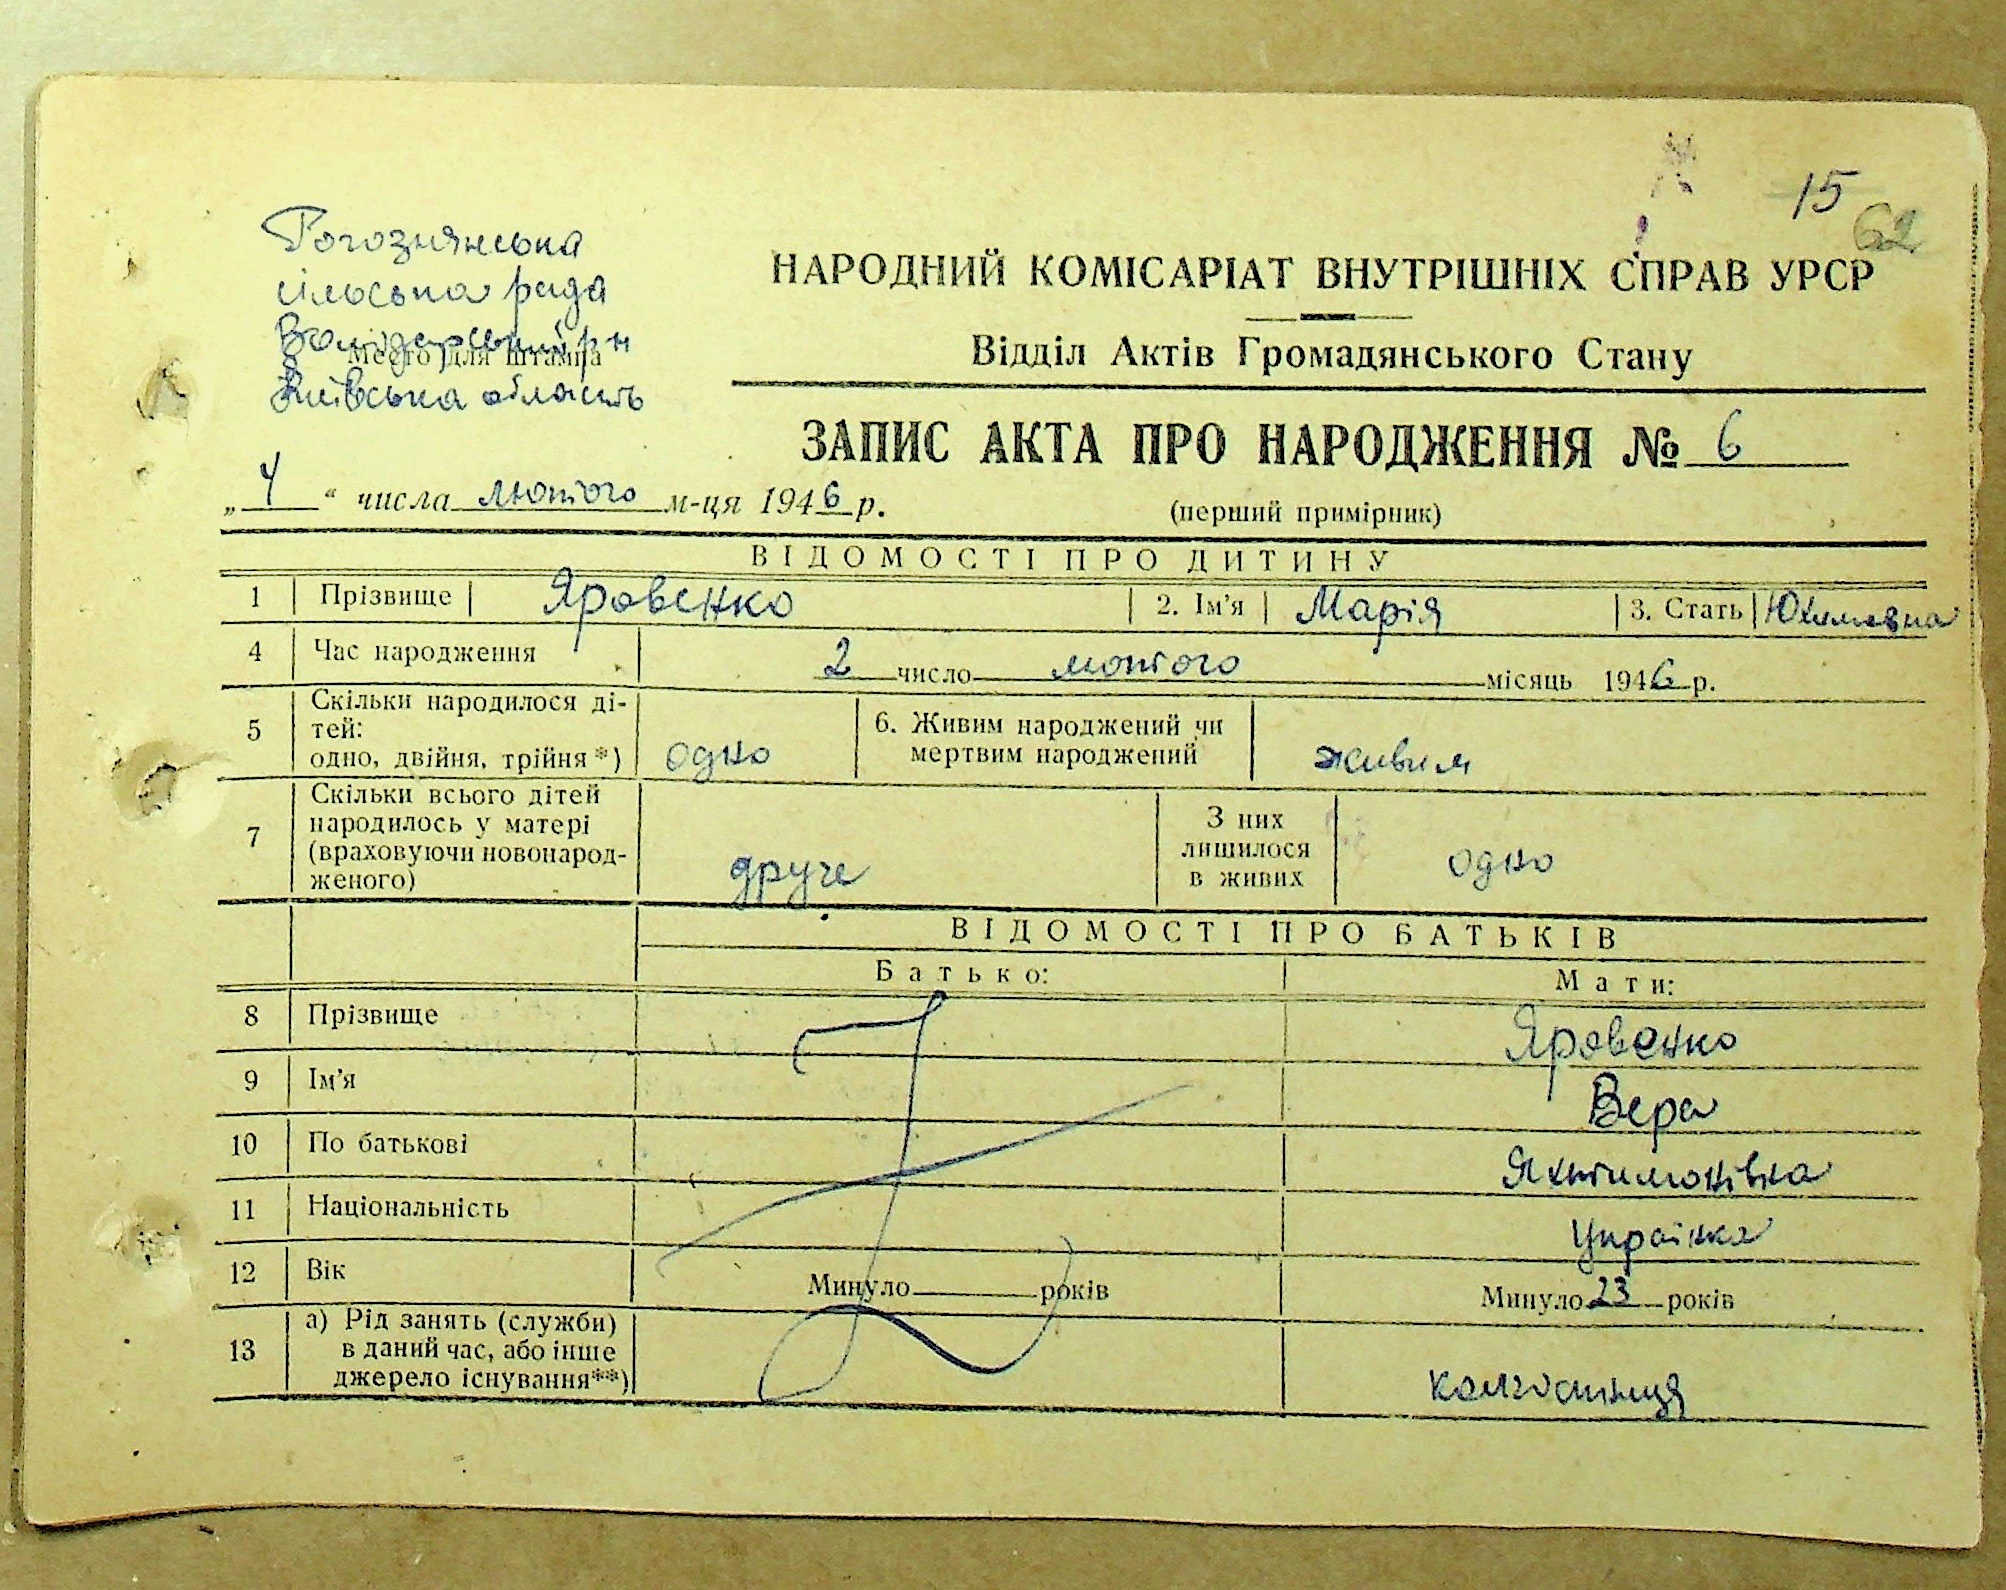 15
62
Рогознянська
сільська рада
Володарський р-н
Київська область
Место для штампа
НАРОДНИЙ КОМІСАРІАТ ВНУТРІШНІХ СПРАВ УРСР
Відділ Актів Громадянського Стану
ЗАПИС АКТА ПРО НАРОДЖЕННЯ № 6
„ 4 “ числа лютого м-ця 1946 р.
(перший примірник)
ВІДОМОСТІ ПРО ДИТИНУ
1 Прізвище Яровенко 2. Ім'я Марія 3. Стать Юхимовна
4 Час народження 2 число лютого місяць 1946 р.
5 Скільки народилося ді-
тей:
одно, двійня, трійня *) одно
6. Живим народжений чи
мертвим народжений живим
7 Скільки всього дітей
народилось у матері
(враховуючи новонарод-
женого) друге
З них
лишилося
в живих одно
ВІДОМОСТІ ПРО БАТЬКІВ
Батько: Мати:
8 Прізвище Яровенко
9 Ім'я Вера
10 По батькові
11 Національність Українка
12 Вік Минуло років Минуло 23 років
13 а) Рід занять (служби)
в даний час, або інше
джерело існування**) колгоспниця